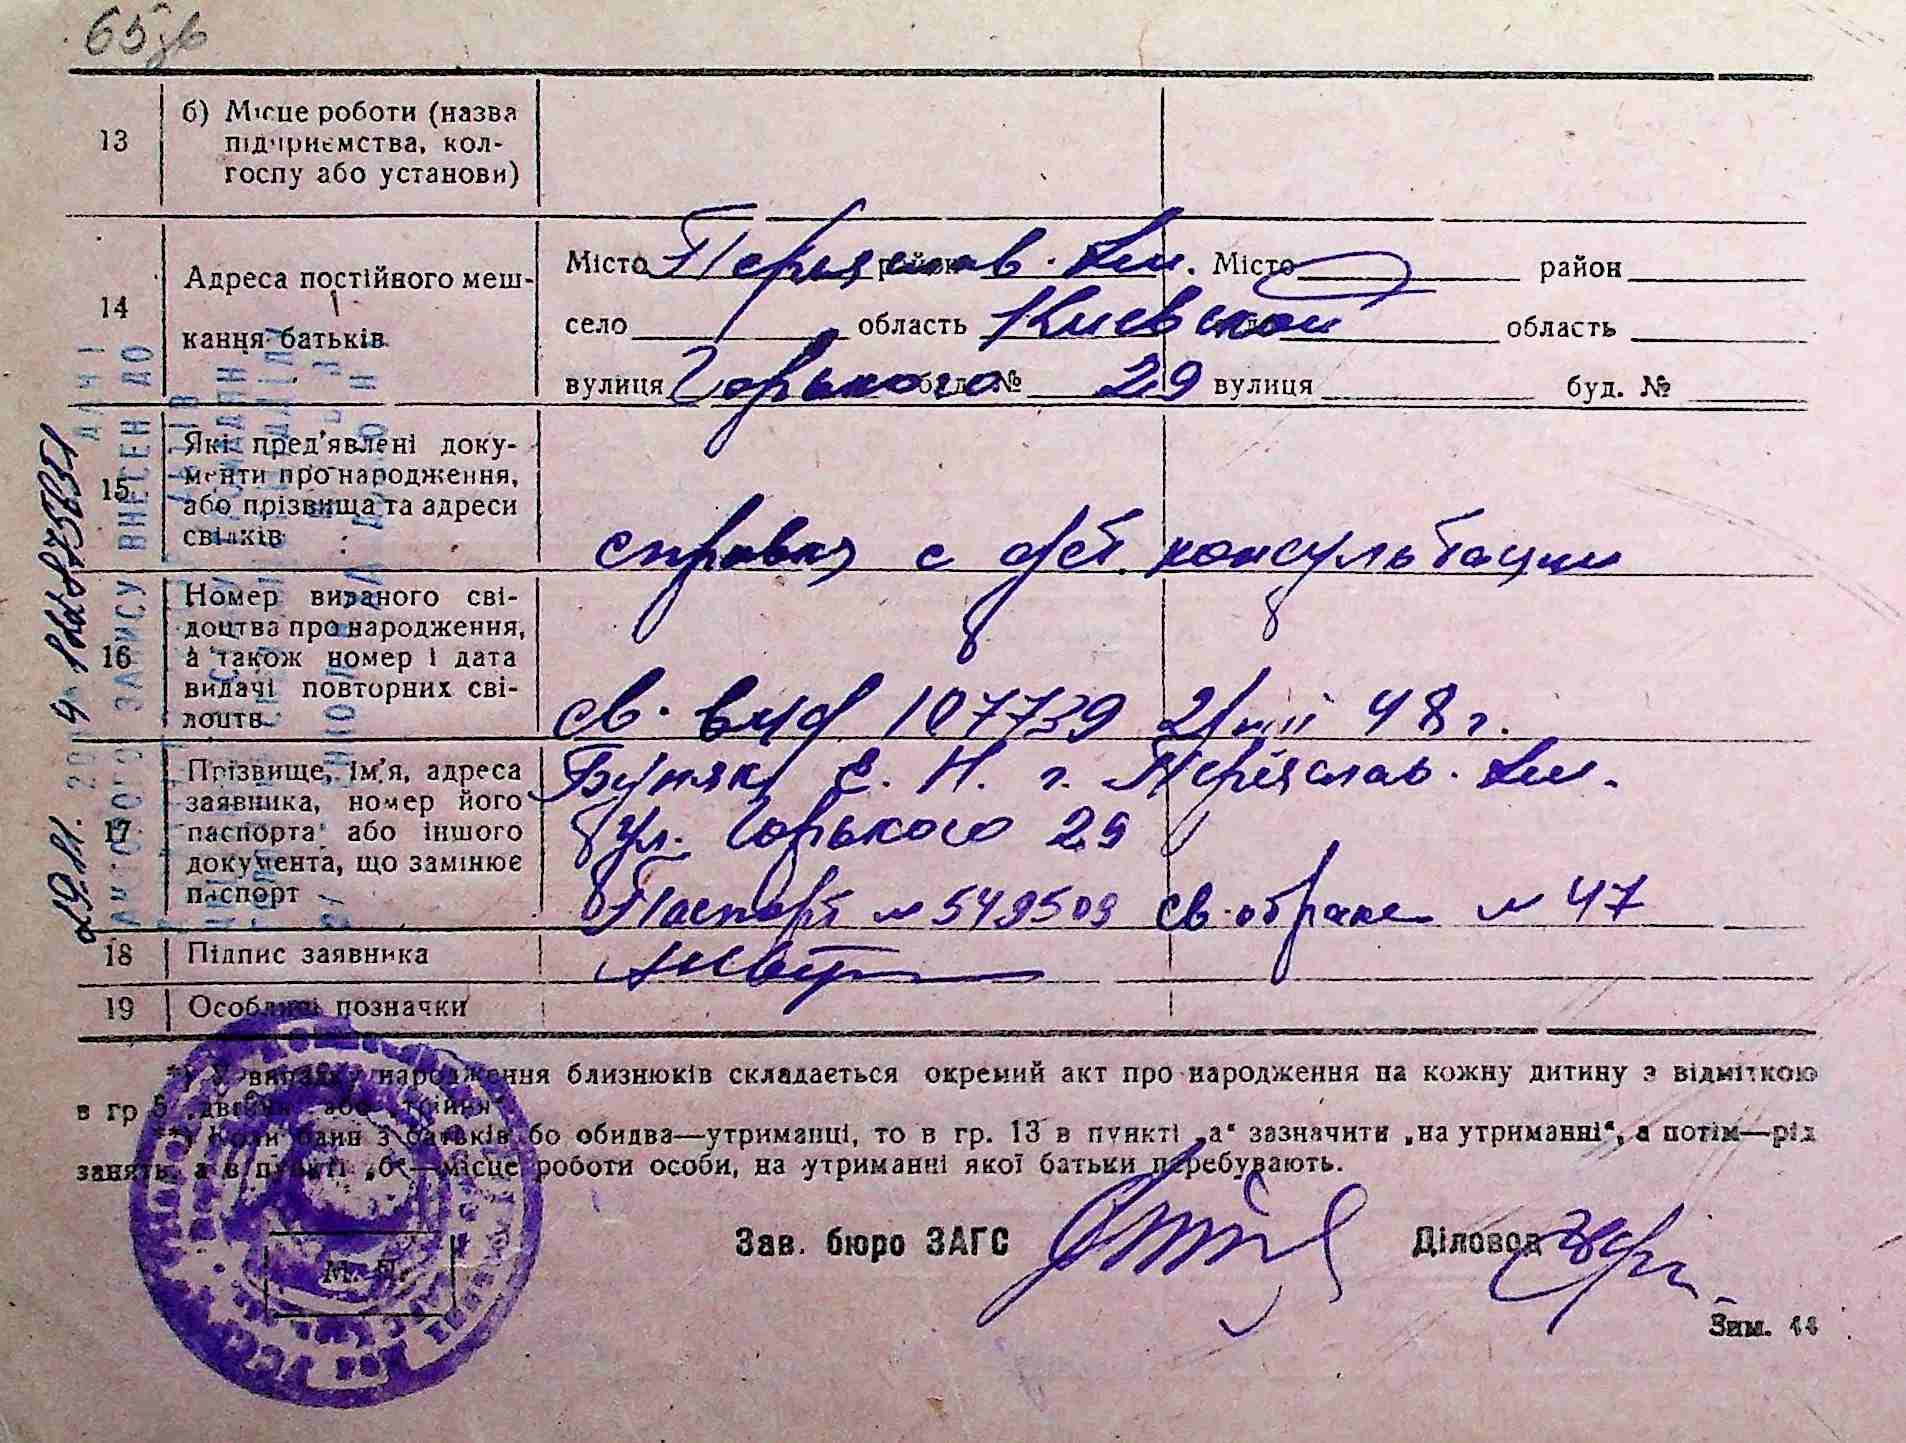 65зв
13
б) Місце роботи (назва
підприємства, кол-
госпу або установи)
14
Адреса постійного меш-
кання батьків
Місто Переяслав. Хм. район Місто район
село область Киевской область
вулиця Горького буд. № 29 вулиця буд. №
15
Які пред'явлені доку-
менти про народження,
або прізвища та адреси
свідків
справка с дет. консультации
16
Номер виданого сві-
доцтва про народження,
а також номер і дата
видачі повторних сві-
доцтв
св. 107739 48 г.
17
Прізвище, ім'я, адреса
заявника, номер його
паспорта або іншого
документа, що замінює
паспорт
Е. Н. г. Переяслав. Хм.
ул. Горького 29
Паспорт № 549509 св. о браке № 47
18
Підпис заявника
19
Особливі позначки
*) У випадку народження близнюків складається окремий акт про народження на кожну дитину з відміткою
в гр 5 „двійня“ або „трійня“.
**) Коли один з батьків бо обидва—утриманці, то в гр. 13 в пункті „а“ зазначити „на утриманні“, а потім—рід
занять, а в пункті „б“—місце роботи особи, на утриманні якої батьки перебувають.
Зав. бюро ЗАГС Діловод
М. П.
Зим. 44